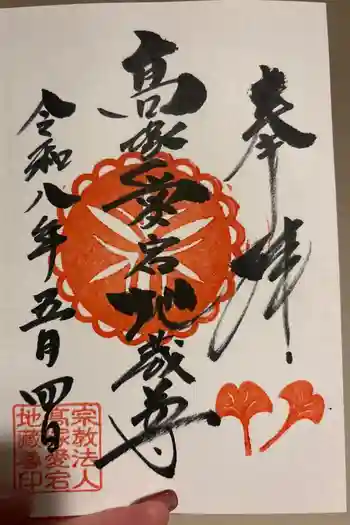 奉拝
高塚愛宕地蔵尊
令和八年五月四日
宗教法人
高塚愛宕
地蔵尊印